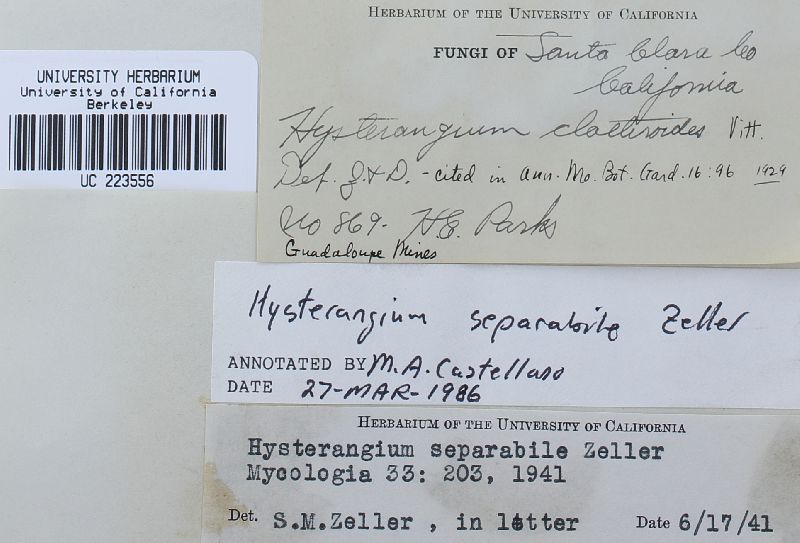 UNIVERSITY HERBARIUM
University of California
Berkeley
UC 223556
HERBARIUM OF THE UNIVERSITY OF CALIFORNIA
FUNGI OF Santa Clara Co
California
Hysterangium clathroides Vitt.
Det. Z. & D. - cited in Ann. Mo. Bot. Gard. 16: 96 1929
No 869. H.E. Parks
Guadaloupe Mines
Hysterangium separabile Zeller
ANNOTATED BY M.A. Castellano
DATE 27-MAR-1986
HERBARIUM OF THE UNIVERSITY OF CALIFORNIA
Hysterangium separabile Zeller
Mycologia 33: 203, 1941
Det. S.M.Zeller , in letter Date 6/17/41